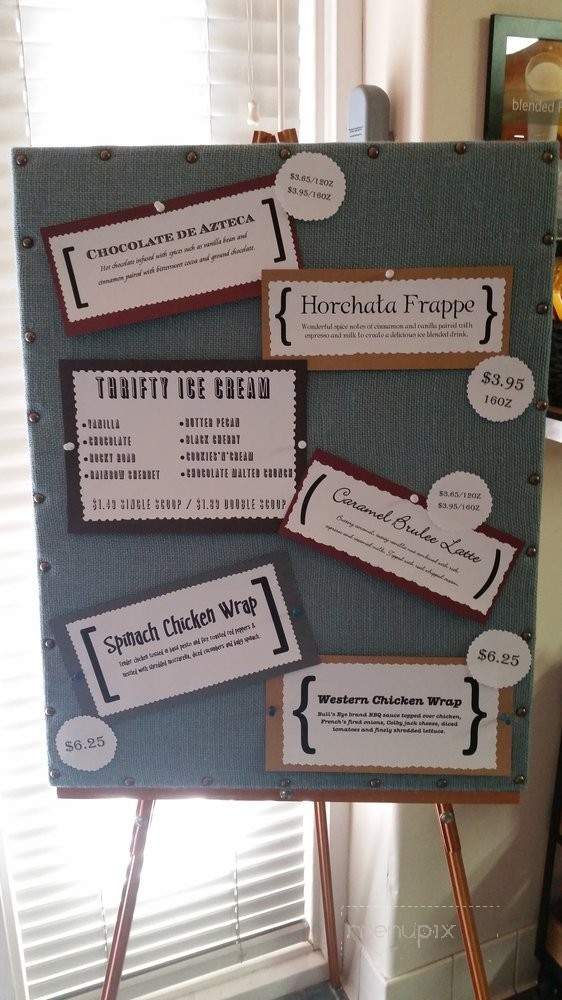 blended
$3.65/12OZ
$3.95/16OZ
CHOCOLATE DE AZTECA
Hot chocolate infused with spices such as vanilla bean and
cinnamon paired with bittersweet cocoa and ground chocolate.
Horchata Frappe
Wonderful spice notes of cinnamon and vanilla paired with
espresso and milk to create a delicious ice blended drink.
$3.95
16OZ
THRIFTY ICE CREAM
•VANILLA
•CHOCOLATE
•ROCKY ROAD
•RAINBOW SHERBET
•BUTTER PECAN
•BLACK CHERRY
•COOKIES'N'CREAM
•CHOCOLATE MALTED CRUNCH
$1.49 SINGLE SCOOP / $1.99 DOUBLE SCOOP
$3.65/12OZ
$3.95/16OZ
Caramel Brulee Latte
Creamy caramel, combined with rich
espresso and steamed milk. Topped with whipped cream.
Spinach Chicken Wrap
Tender chicken tossed in basil pesto and fire roasted red peppers &
nestled with shredded mozzarella, diced cucumbers and baby spinach.
$6.25
$6.25
Western Chicken Wrap
Bull's Eye brand BBQ sauce topped over chicken,
French's fried onions, Colby jack cheese, diced
tomatoes and finely shredded lettuce.
menupix